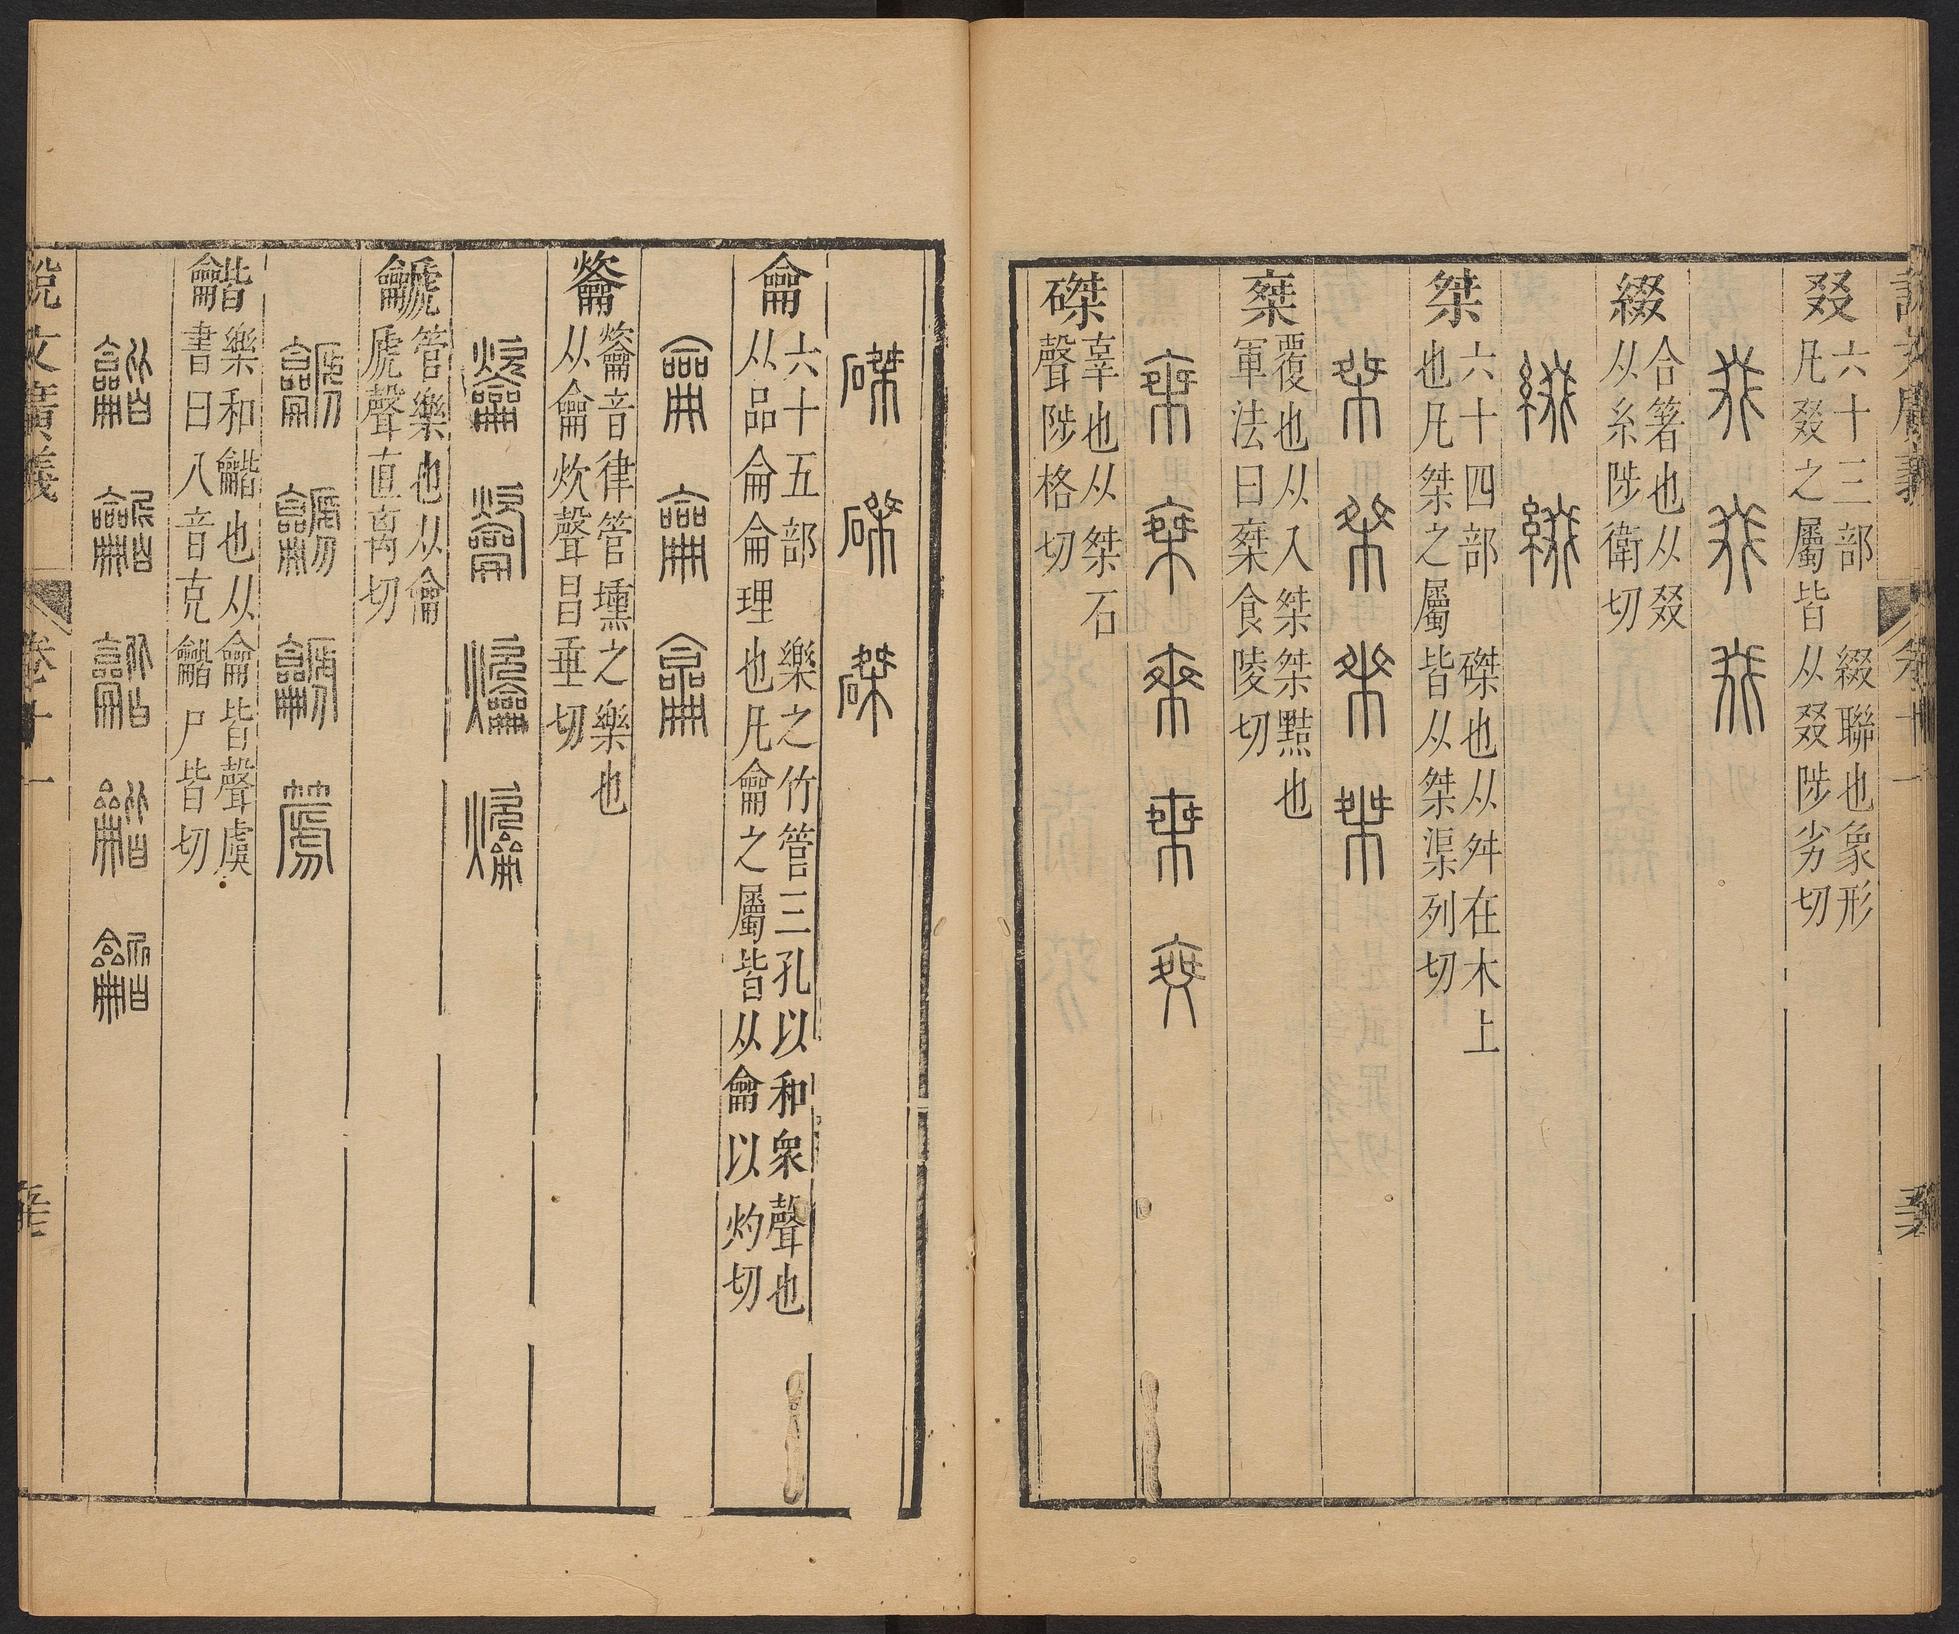 說文廣義
卷十一
叕
六十三部　綴聯也象形
凡叕之屬皆从叕陟劣切
綴
合箸也从叕
从糸陟衛切
桀
六十四部　磔也从舛在木上
也凡桀之屬皆从桀渠列切
椉
覆也从入桀桀黠也
軍法曰椉食陵切
磔
辜也从桀石
聲陟格切
龠
六十五部　樂之竹管三孔以和衆聲也
从品侖侖理也凡龠之屬皆从龠以灼切
龡
籥音律管壎之樂也
从龠炊聲昌垂切
䶵
管樂也从龠
虒聲直离切
龤
樂和龤也从龠皆聲虞
書曰八音克龤尸皆切
說文廣義
卷十一